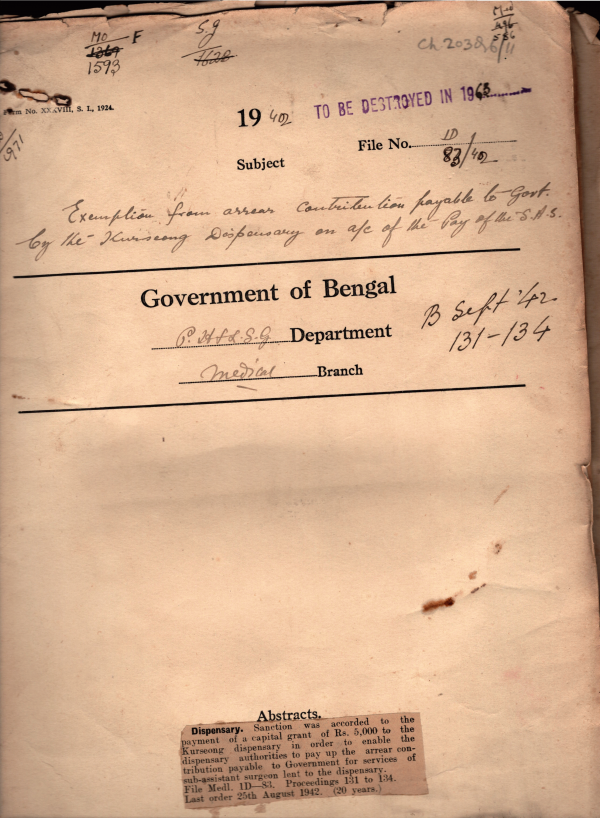 Mo F
1369
1593
S.g
1628
Ch. 2038
6/11
Form No. XXXVIII, S. I., 1924.
1940-42 TO BE DESTROYED IN 1963
File No. 1D
83/42
Subject
Exemption from arrear contribution payable to Govt.
by the Kurseong Dispensary on a/c of the Pay of the S.A.S.
Government of Bengal
P. H & L. S. G Department
Medical Branch
B Sept '42
131-134
Abstracts.
Dispensary. Sanction was accorded to the
payment of a capital grant of Rs. 5,000 to the
Kurseong dispensary in order to enable the
dispensary authorities to pay up the arrear con-
tribution payable to Government for services of
sub-assistant surgeon lent to the dispensary.
File Medl. 1D—83. Proceedings 131 to 134.
Last order 25th August 1942. (20 years.)